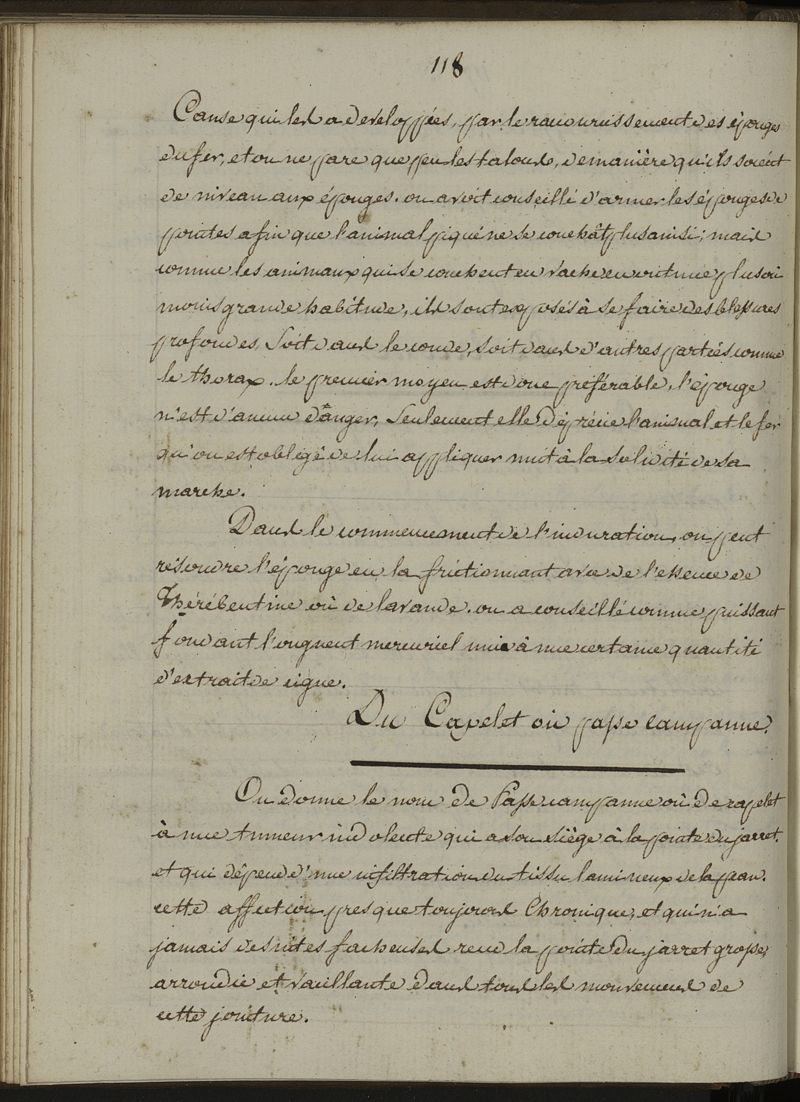 118
Cause qui les a développées, par le racourcissement des éponges
du fer, et on ne pare que peu les talons, de manière qu'ils soient
de niveau aux éponges. on avoit conseillé d'armer les éponges de
pointes afin que l'animal piqué ne se couchât plus ainsi; mais
comme les animaux qui se couchent en vache en ont une plus ou
moins grande habitude, ils sont exposés à se faire des blessures
profondes, soit dans le coude, soit dans d'autres parties comme
le thorax. le premier moyen est donc préférable, l'éponge
n'est d'aucun danger, seulement elle déprécie l'animal et le fer
qu'on est obligé de lui appliquer nuit à la solidité de sa
marche.
Dans le commencement de l'induration, on peut
résoudre l'éponge en la frictionnant avec de l'essence de
Thérébentine où de lavande. on a conseillé comme puissant
fondant l'onguent mercuriel unie à une certaine quantité
d'extrait de cigue.
Du Capelet où passe campanne.
On donne le nom de Passe campanne où de capelet
à une tumeur indolente qui a son siège à la pointe du jarret.
et qui dépend d'une infiltration du tissu lamineux de la peau.
cette affection presque toujours Chronique, et qui n'a
jamais de suites facheuses rend la pointe du jarret grosse,
arrondie et vacillante dans tous les mouvemens de
cette jointure.